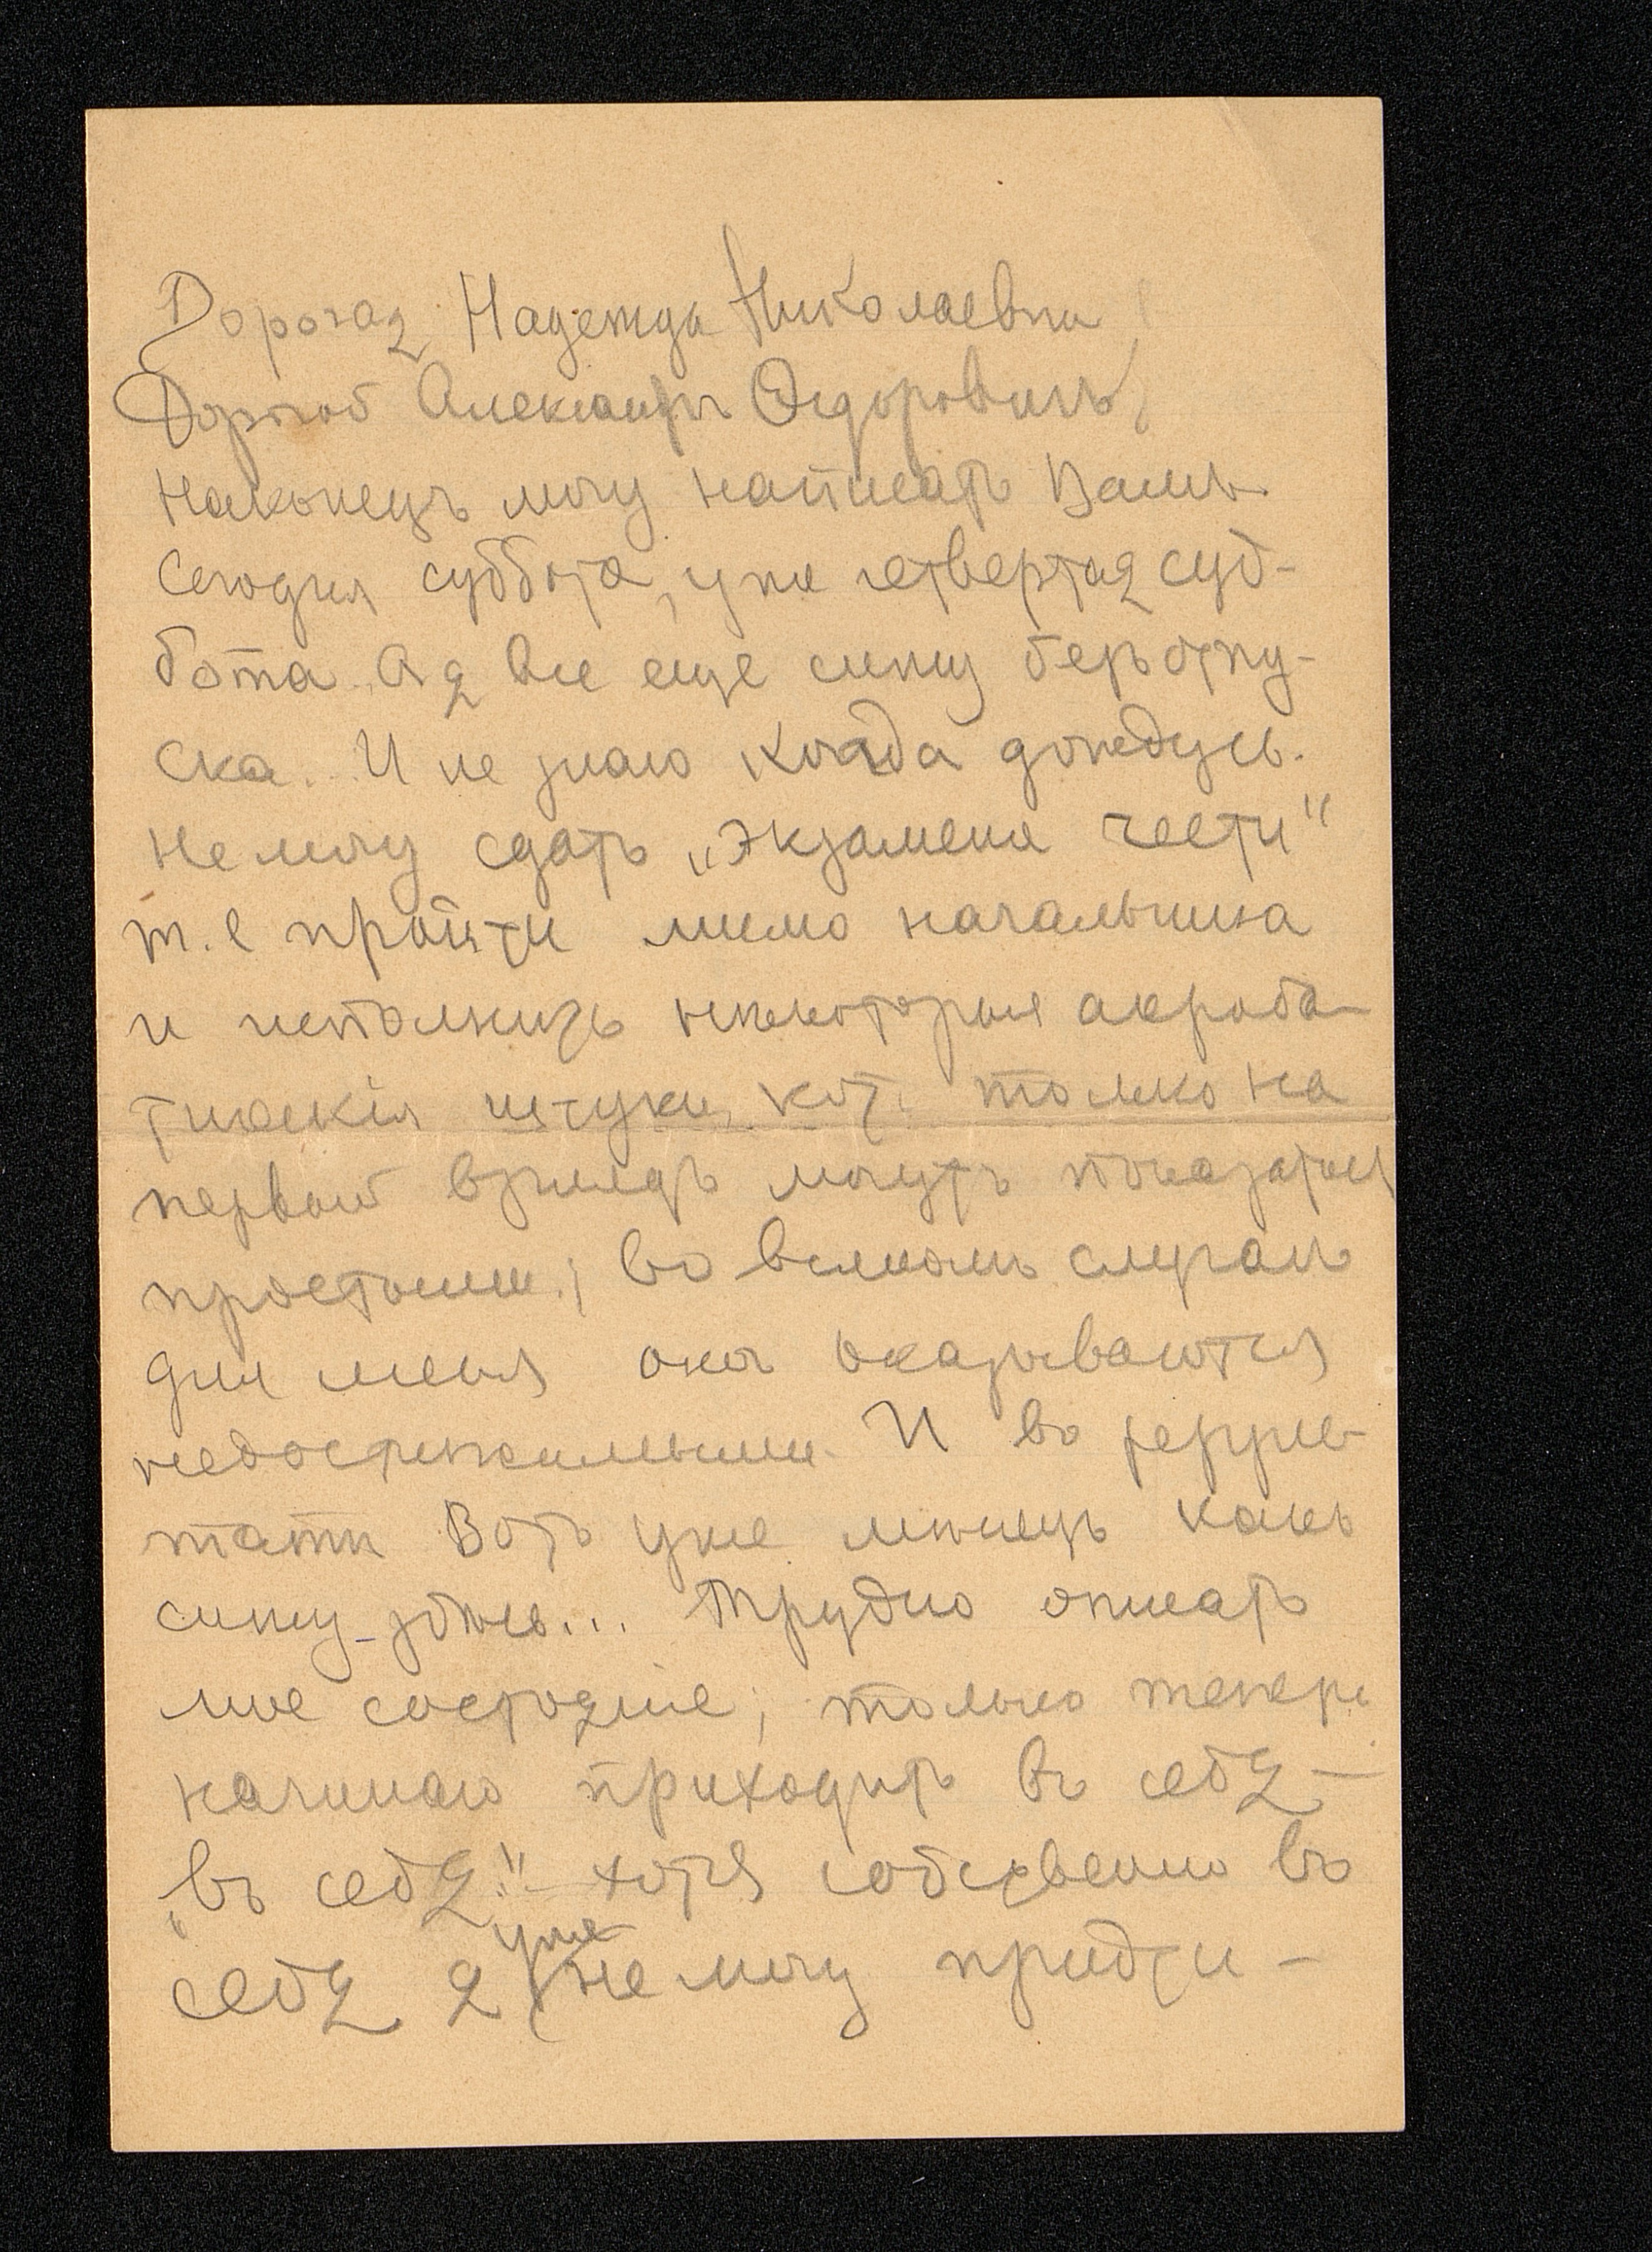 Дорогая Надежда Николаевна!
Дорогой Александръ Ѳедоровичъ,
Наконецъ могу написать Вамъ.
Сегодня суббота, уже четвертая суб-
бота. А я все еще сижу безъ отпу-
ска. И не знаю когда дождусь.
Не могу сдать „экзамена чести"
т. е пройти мимо начальника
и исполнить нѣкоторыя акроба-
тическія штуки, кот. только на
первый взглядъ могутъ показаться
простыми; во всякомъ случаѣ
для меня они оказываются
недостижимыми. И въ резуль-
татѣ вотъ уже мѣсяцъ какъ
сижу здѣсь... Трудно описать
мое состояніе; только теперь
начинаю приходить въ себя —
„въ себя" хотя собственно въ
себя я уже не могу придти —